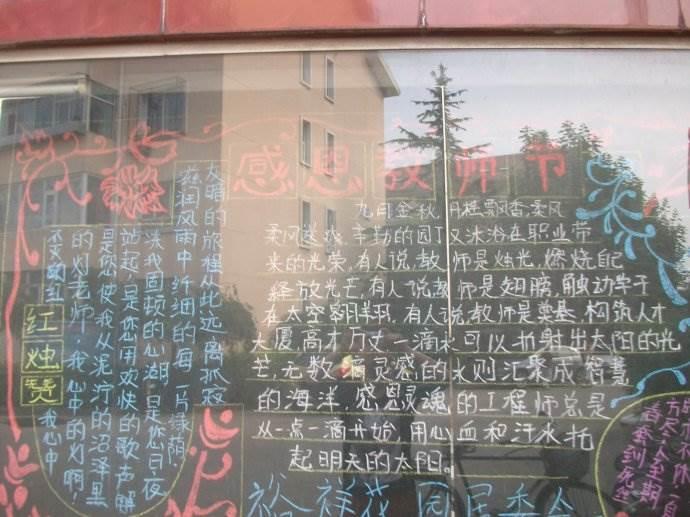 感恩教师节
九月金秋,丹桂飘香,柔风
柔风送爽,辛勤的园丁又沐浴在职业带
来的光荣,有人说,教师是烛光,燃烧自己
释放光芒,有人说,教师是翅膀,触动学子
在太空翱翔,有人说教师是奠基,构筑人才
大厦,高才万丈,一滴水可以折射出太阳的光
芒,无数滴灵感的水则汇聚成智慧
的海洋,感恩灵魂的工程师总是
从一点一滴开始,用心血和汗水托
起明天的太阳。
裕祥花园居委会
红烛赞
大暗的旅程从此远离孤寂
滋润风雨中纤细的每一片绿荫,
洗我固顿的心湖,是您日夜
站起,是您用欢快的歌声解
是您使我从泥泞的沼泽里
的灯老师,我心中的灯啊!
我心中